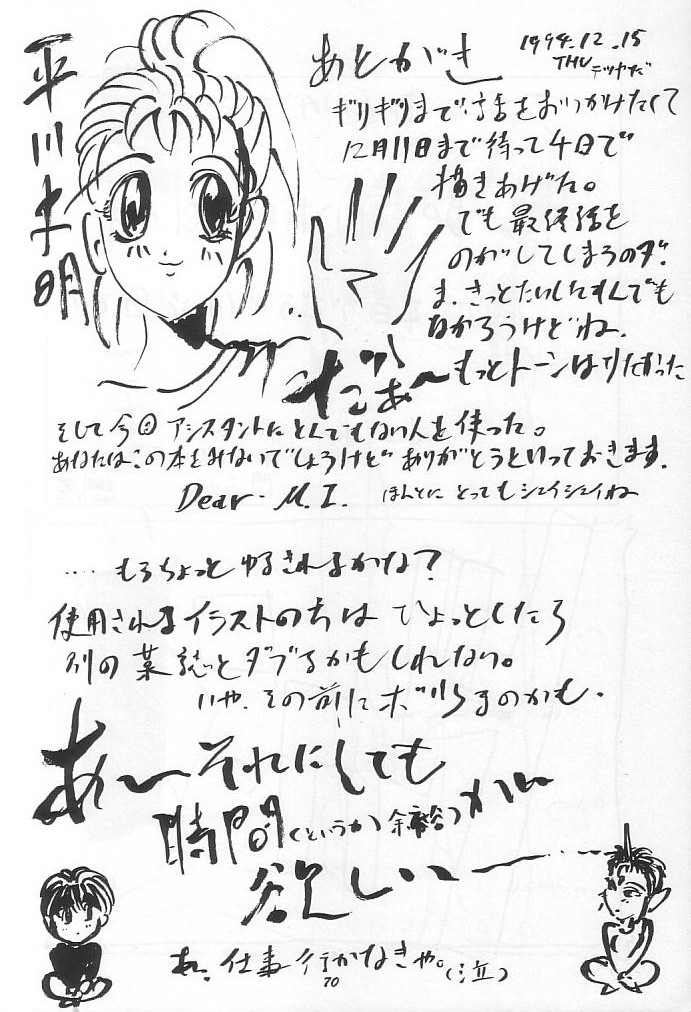 平川 明
あとがき
1994.12.15
THU テツヤだ
ギリギリまで話をおっかけたくて
12月11日まで待って4日で
描きあげた。
でも最終話を
のがしてしまうのダ。
ま、きっとたいしたもんでも
なかろうけどね。
だぁ〜もっとトーンはりたかった
そして今回アシスタントにとんでもない人を使った。
あなたはこの本をみないでしょうけどありがとうといっておきます。
Dear・M.I. ほんとに とってもシェイシェイね
‥‥もうちょっとゆるされるかな？
使用されるイラストの方はひょっとしたら
別の某誌とダブるかもしれない。
いや、その前にボツるのかも・
あ〜それにしても
時間(というか余裕)が
欲しい〜
あ、仕事行かなきゃ。(泣)
70